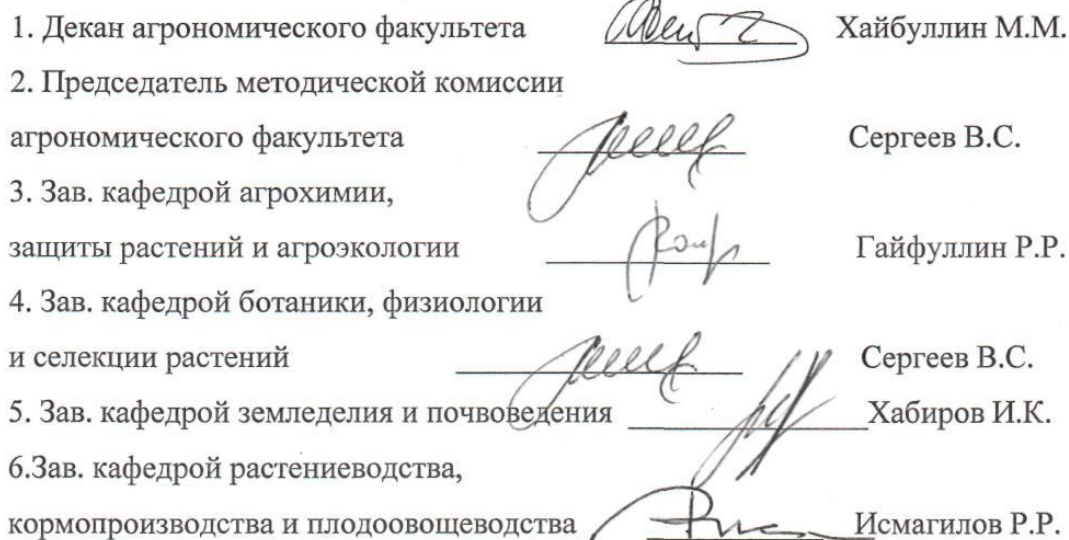 1. Декан агрономического факультета Хайбуллин М.М.
2. Председатель методической комиссии
агрономического факультета Сергеев В.С.
3. Зав. кафедрой агрохимии,
защиты растений и агроэкологии Гайфуллин Р.Р.
4. Зав. кафедрой ботаники, физиологии
и селекции растений Сергеев В.С.
5. Зав. кафедрой земледелия и почвоведения Хабиров И.К.
6.Зав. кафедрой растениеводства,
кормопроизводства и плодоовощеводства Исмагилов Р.Р.